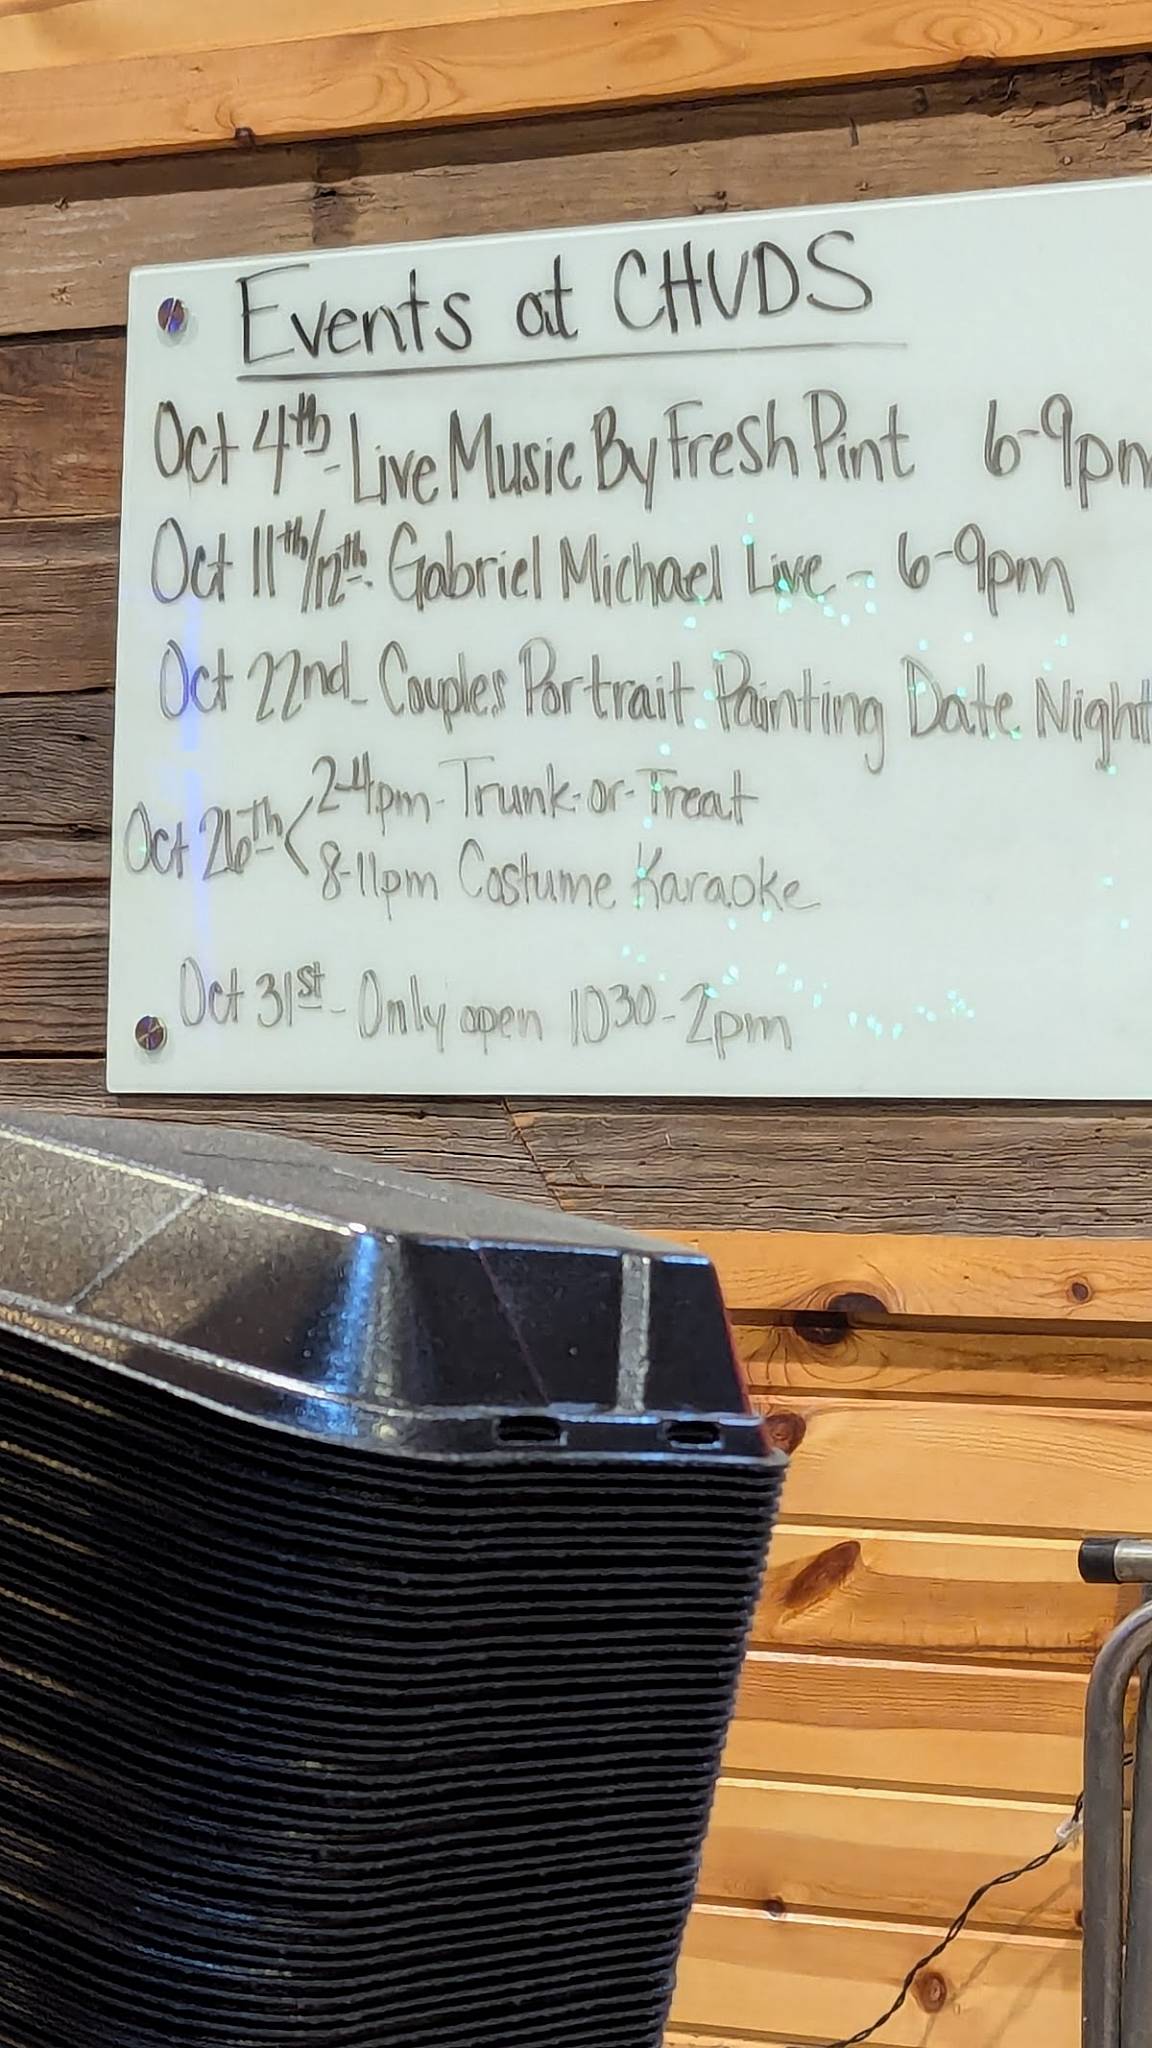 Events at CHUDS
Oct 4th - Live Music By Fresh Pint 6-9pm
Oct 11th/12th - Gabriel Michael Live - 6-9pm
Oct 22nd - Couples Portrait Painting Date Night
Oct 26th < 2-4pm - Trunk-or-Treat
8-11pm Costume Karaoke
Oct 31st - Only open 1030 - 2pm